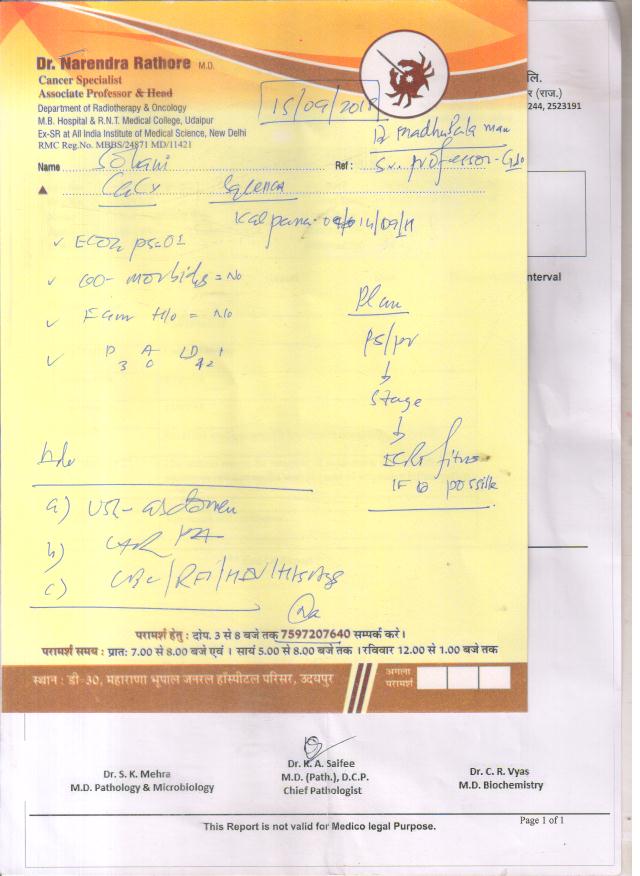 Dr. Narendra Rathore M.D.
Cancer Specialist
Associate Professor & Head
Department of Radiotherapy & Oncology
M.B. Hospital & R.N.T. Medical College, Udaipur
Ex-SR at All India Institute of Medical Science, New Delhi
RMC Reg.No. MBBS/24871 MD/11421
15/09/201
Name Ref :
CaCx
Kalpana
ECOG PS-01
Co-morbids = No
Fam H/o = No
P3 A0 LD
Plan
PS/PV
Stage
IF possible
a) USG-abdomen
b) CXR PA
c) CBC/RFT/HIV/HbsAg
परामर्श हेतु : दोप. 3 से 8 बजे तक 7597207640 सम्पर्क करे।
परामर्श समय : प्रातः 7.00 से 8.00 बजे एवं । सायं 5.00 से 8.00 बजे तक । रविवार 12.00 से 1.00 बजे तक
स्थान : डी-30, महाराणा भूपाल जनरल हॉस्पीटल परिसर, उदयपुर
अगला
परामर्श
लि.
र (राज.)
244, 2523191
nterval
Dr. S. K. Mehra
M.D. Pathology & Microbiology
Dr. K. A. Saifee
M.D. (Path.), D.C.P.
Chief Pathologist
Dr. C. R. Vyas
M.D. Biochemistry
This Report is not valid for Medico legal Purpose.
Page 1 of 1